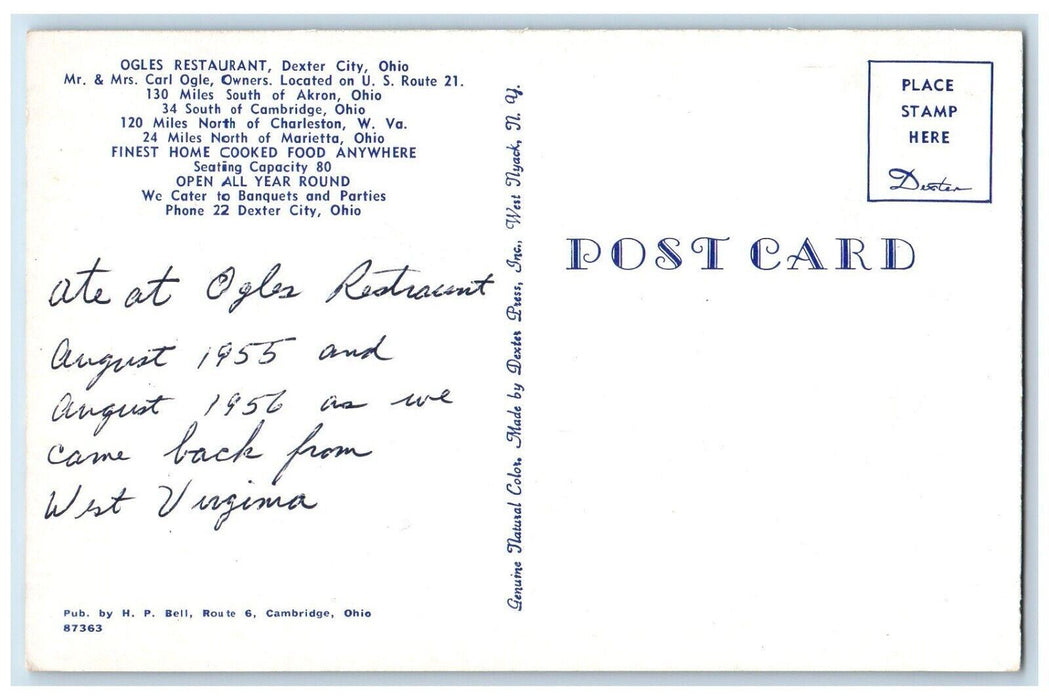 OGLES RESTAURANT, Dexter City, Ohio
Mr. & Mrs. Carl Ogle, Owners. Located on U. S. Route 21.
130 Miles South of Akron, Ohio
34 South of Cambridge, Ohio
120 Miles North of Charleston, W. Va.
24 Miles North of Marietta, Ohio
FINEST HOME COOKED FOOD ANYWHERE
Seating Capacity 80
OPEN ALL YEAR ROUND
We Cater to Banquets and Parties
Phone 22 Dexter City, Ohio
ate at Ogles Restraunt
August 1955 and
August 1956 as we
came back from
West Virginia
Pub. by H. P. Bell, Route 6, Cambridge, Ohio
87363
Genuine Natural Color. Made by Dexter Press, Inc., West Nyack, N. Y.
PLACE
STAMP
HERE
Dexter
POST CARD